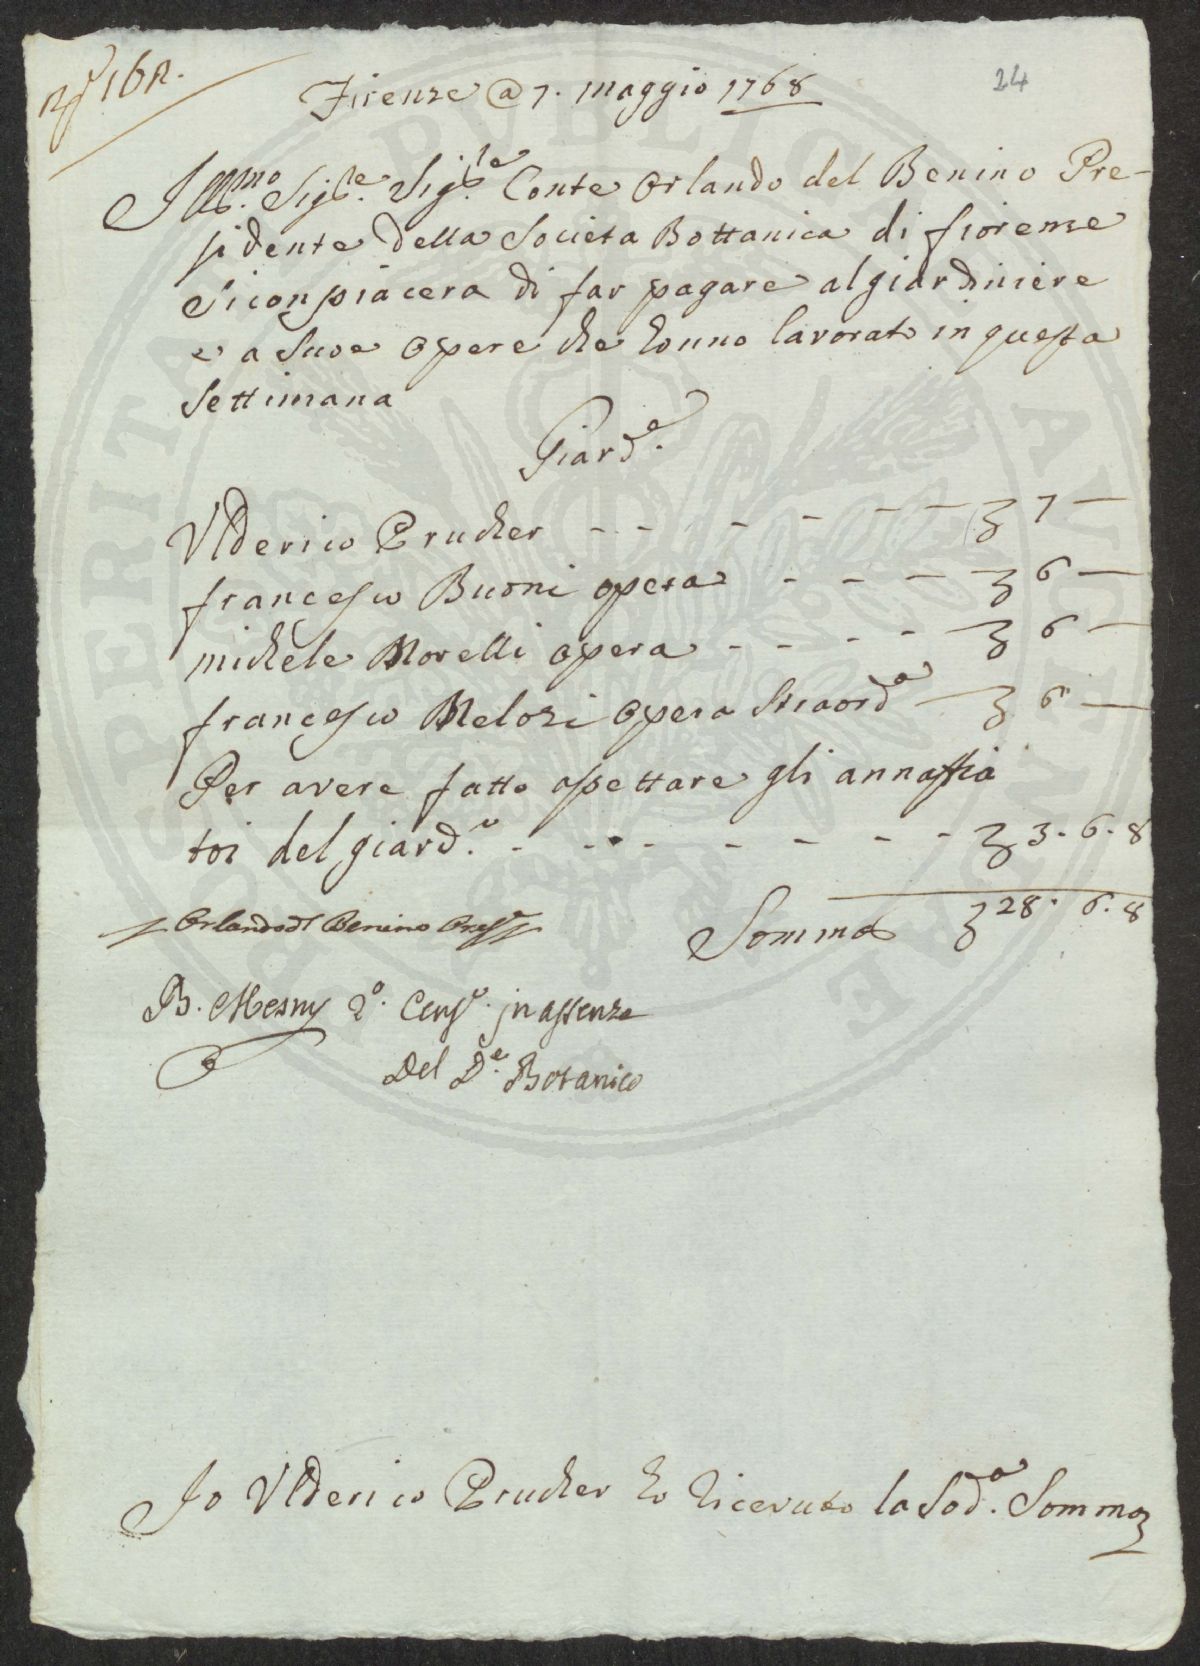 24
Firenze @ 7. maggio 1768
Ill.mo Sig.re Sig.re Conte Orlando del Benino Pre-
sidente della Societa Bottanica di fiorense
Si conpiacera di far pagare al giardiniere
e a Suoe opere che honno lavorato in questa
Settimana
Giard.e
Vlderico Prucker - - - - - - - £ 7 —
francesco Buoni opera - - - £ 6 —
michele Morelli opera - - - - £ 6 —
francesco Melozi opera Straord.a £ 6 —
Per avere fatto assettare gli annaffia
toi del giard.o - - - - - - - £ 3. 6. 8
Somma £ 28. 6. 8
Orlando del Benino Pres.e
B. Mesny 2.o Cens.e in assenza
Del D.e Botanico
Io Vlderico Prucker ho riceruto la Sod.a Somma
ACCADEMIA PVBLICAE PROSPERITATI